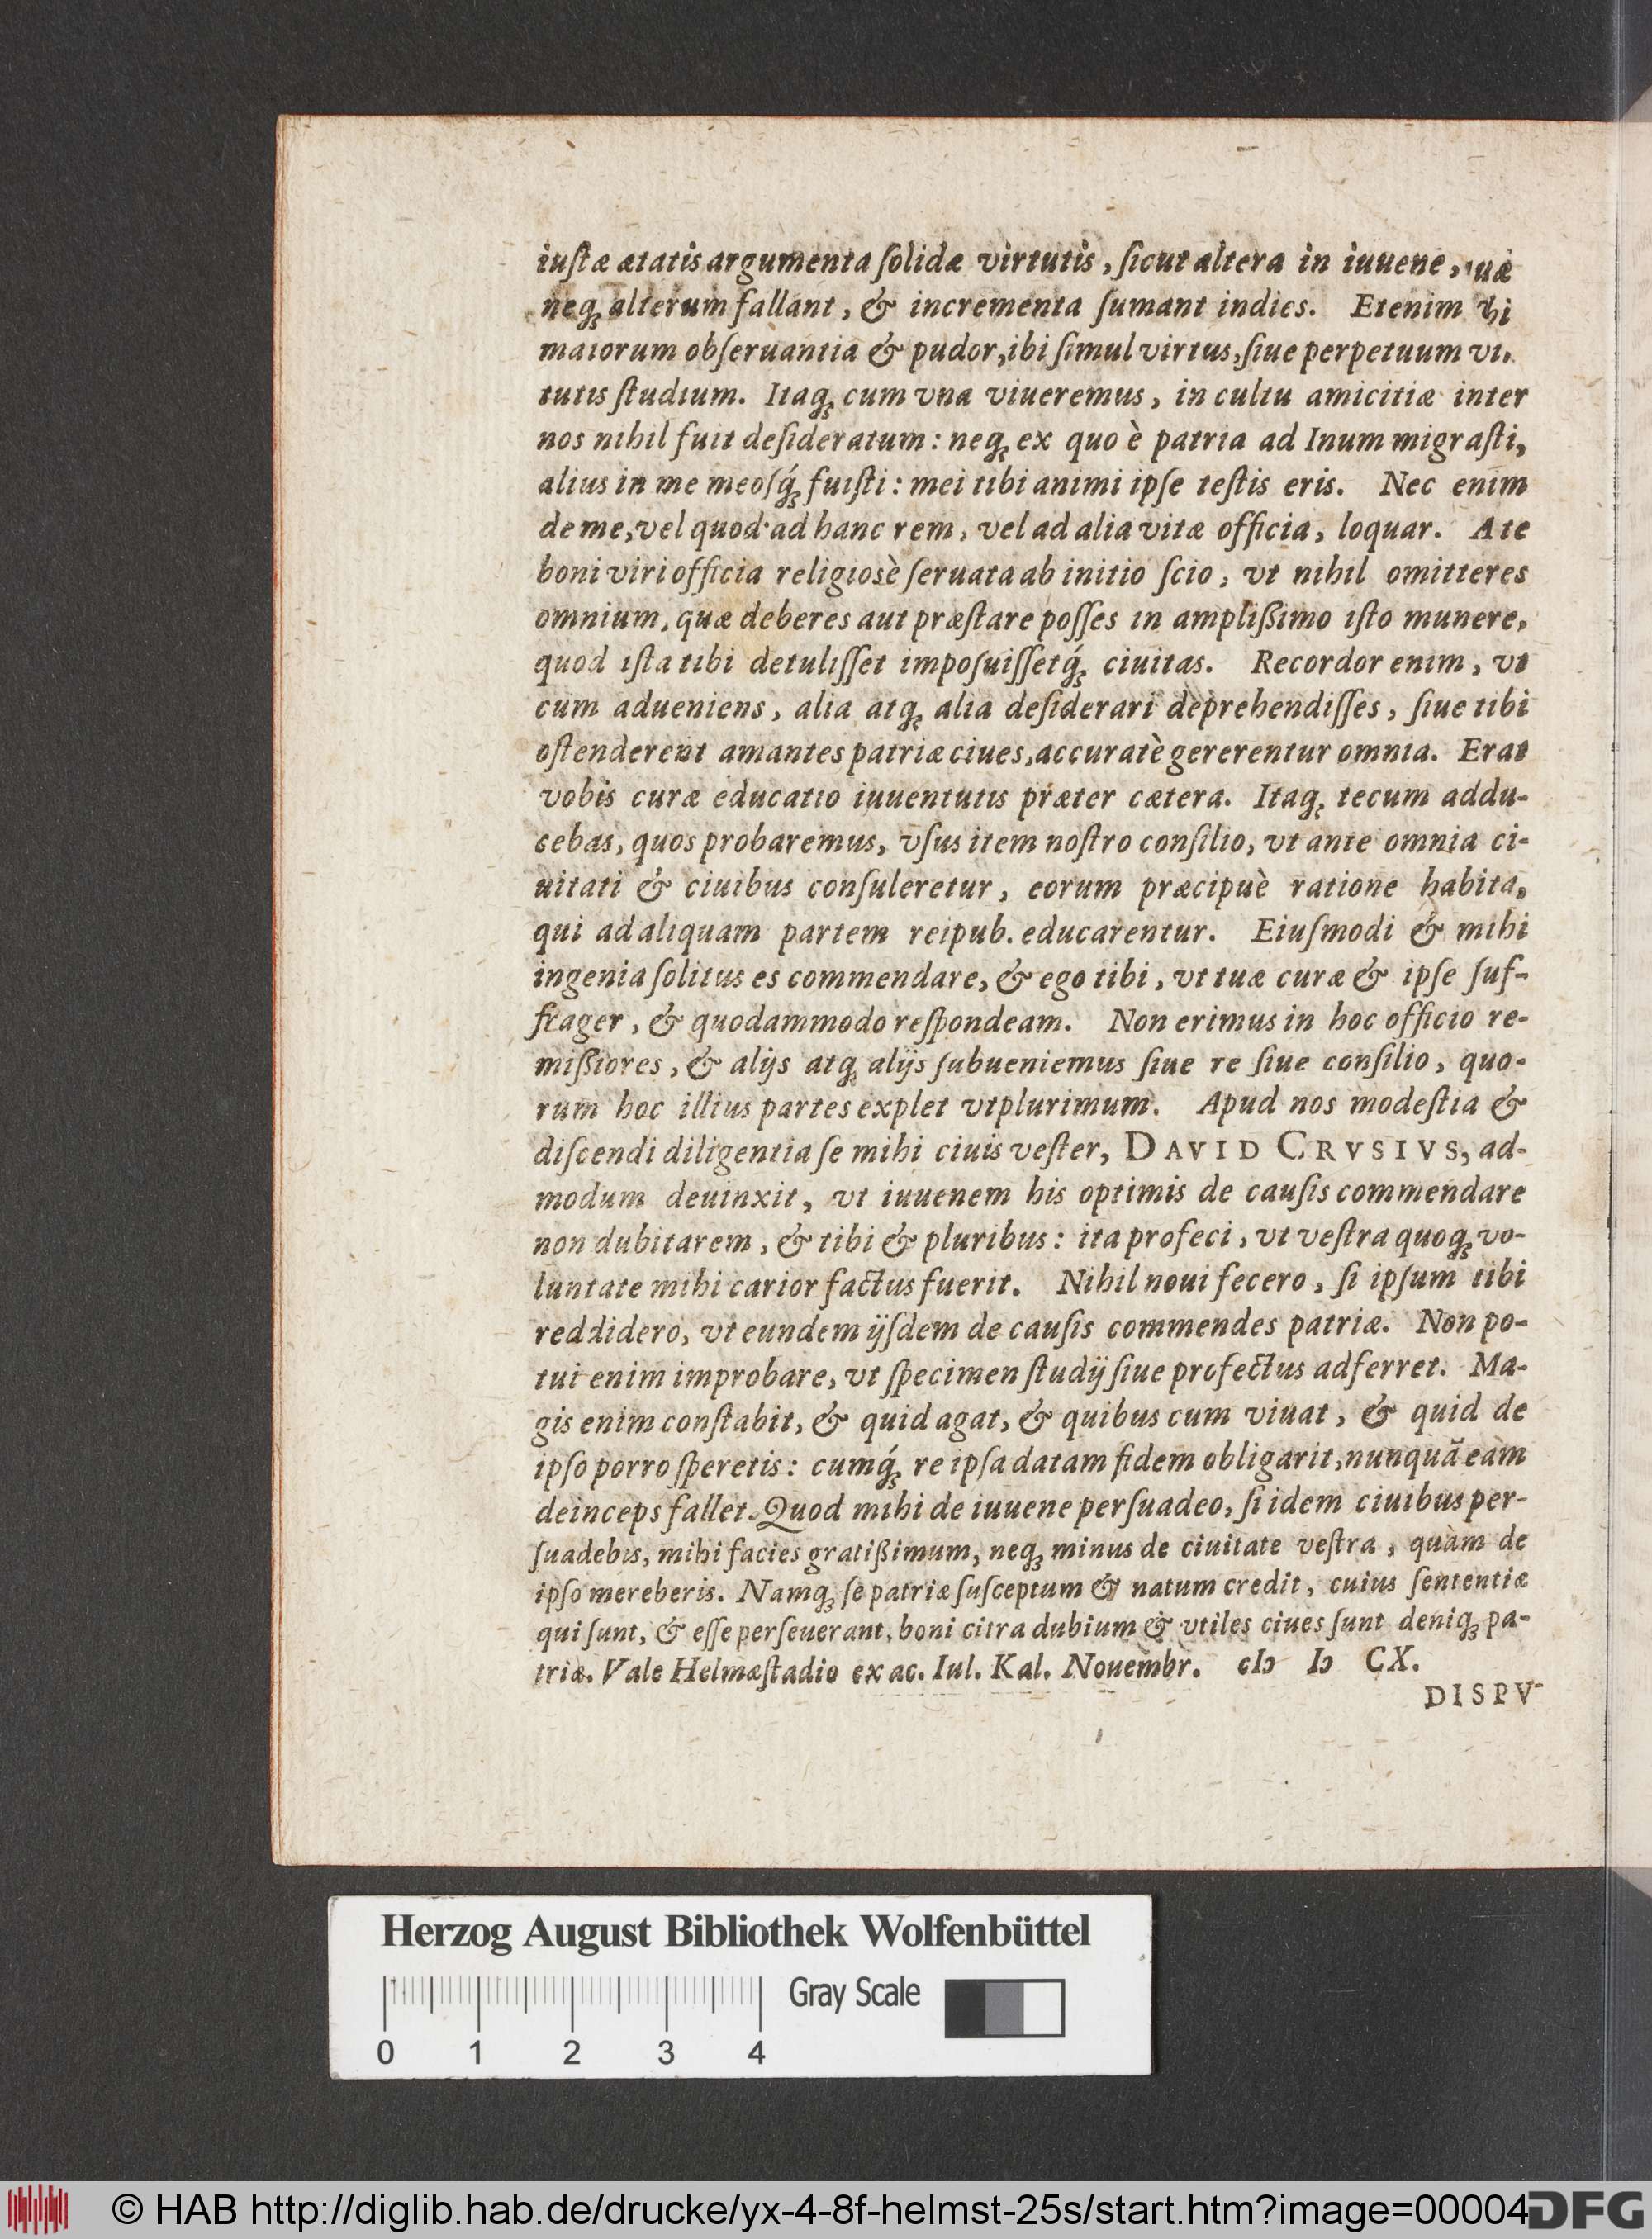 iuſtæ ætatis argumenta ſolidæ virtutis, ſicut altera in iuuene, quæ
neq; alterum fallant, & incrementa ſumant indies. Etenim vbi
maiorum obſeruantia & pudor, ibi ſimul virtus, ſiue perpetuum vir
tutis ſtudium. Itaq; cum vna viueremus, in cultu amicitiæ inter
nos nihil fuit deſideratum: neq; ex quo è patria ad Inum migraſti,
alius in me meoſq́; fuiſti: mei tibi animi ipſe teſtis eris. Nec enim
de me, vel quod ad hanc rem, vel ad alia vitæ officia, loquar. A te
boni viri officia religiosè ſeruata ab initio ſcio, vt nihil omitteres
omnium, quæ deberes aut præſtare poſſes in ampliſsimo iſto munere,
quod iſta tibi detuliſſet impoſuiſſetq́; ciuitas. Recordor enim, vt
cum adueniens, alia atq; alia deſiderari deprehendiſſes, ſiue tibi
oſtenderent amantes patriæ ciues, accuratè gererentur omnia. Erat
vobis curæ educatio iuuentutis præter cætera. Itaq; tecum addu-
cebas, quos probaremus, vſus item noſtro conſilio, vt ante omnia ci-
uitati & ciuibus conſuleretur, eorum præcipuè ratione habita,
qui ad aliquam partem reipub. educarentur. Eiuſmodi & mihi
ingenia ſolitus es commendare, & ego tibi, vt tuæ curæ & ipſe ſuf-
frager, & quodammodo reſpondeam. Non erimus in hoc officio re-
miſsiores, & alijs atq; alijs ſubueniemus ſiue re ſiue conſilio, quo-
rum hoc illius partes explet vtplurimum. Apud nos modeſtia &
diſcendi diligentia ſe mihi ciuis veſter, DAVID CRVSIVS, ad-
modum deuinxit, vt iuuenem his optimis de cauſis commendare
non dubitarem, & tibi & pluribus: ita profeci, vt veſtra quoq; vo-
luntate mihi carior factus fuerit. Nihil noui fecero, ſi ipſum tibi
reddidero, vt eundem ijſdem de cauſis commendes patriæ. Non po-
tui enim improbare, vt ſpecimen ſtudij ſiue profectus adferret. Ma-
gis enim conſtabit, & quid agat, & quibus cum viuat, & quid de
ipſo porro ſperetis: cumq́; re ipſa datam fidem obligarit, nunquã eam
deinceps fallet. Quod mihi de iuuene perſuadeo, ſi idem ciuibus per-
ſuadebis, mihi facies gratiſsimum, neq; minus de ciuitate veſtra, quàm de
ipſo mereberis. Namq; ſe patriæ ſuſceptum & natum credit, cuius ſententiæ
qui ſunt, & eſſe perſeuerant, boni citra dubium & vtiles ciues ſunt deniq; pa-
triæ. Vale Helmæſtadio ex ac. Iul. Kal. Nouembr. cIɔ Iɔ CX.
DISPV-
Herzog August Bibliothek Wolfenbüttel
Gray Scale
0 1 2 3 4
© HAB http://diglib.hab.de/drucke/yx-4-8f-helmst-25s/start.htm?image=00004
DFG